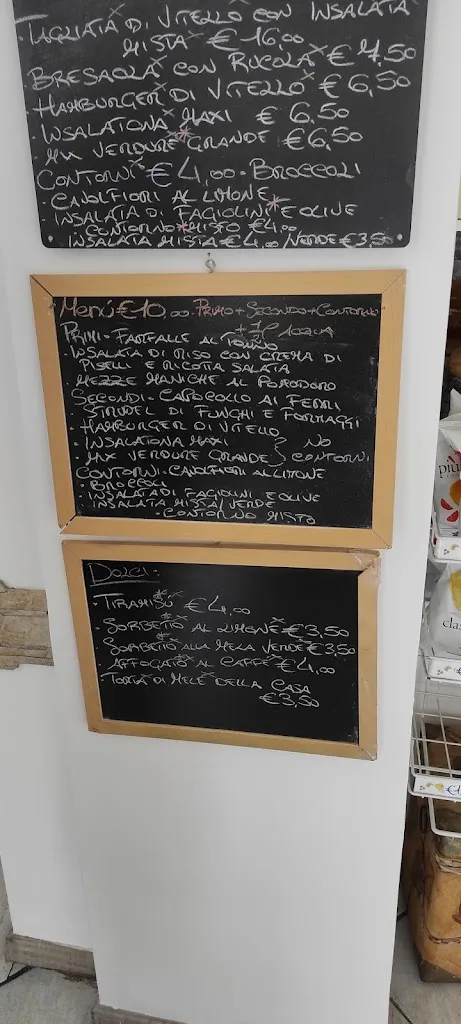 · TAGLIATA DI VITELLO CON INSALATA
MISTA € 16,00
· BRESAOLA CON RUCOLA € 7,50
· HAMBURGER DI VITELLO € 6,50
· INSALATONA MAXI € 6,50
· MX VERDURE GRANDE € 6,50
CONTORNI € 4,00 · BROCCOLI
· CAVOLFIORI AL LIMONE
· INSALATA DI FAGIOLINI E OLIVE
CONTORNO MISTO €4,00
INSALATA MISTA €4,00/VERDE €3,50
Menú €10,00 PRIMO + SECONDO + CONTORNO
+ ACQUA
PRIMI · FARFALLE AL TONNO
· INSALATA DI RISO CON CREMA DI
PISELLI E RICOTTA SALATA
· MEZZE MANICHE AL POMODORO
SECONDI · CAPOCOLLO AI FERRI
· STRUDEL DI FUNGHI E FORMAGGI
· HAMBURGER DI VITELLO
· INSALATONA MAXI } NO
· MX VERDURE GRANDE } CONTORNI
CONTORNI · CAVOLFIORI AL LIMONE
· BROCCOLI
· INSALATA DI FAGIOLINI E OLIVE
· INSALATA MISTA/VERDE
· CONTORNO MISTO
DOLCI ·
· TIRAMISÙ € 4,00
· SORBETTO AL LIMONE € 3,50
· SORBETTO ALLA MELA VERDE € 3,50
· AFFOGATO AL CAFFÈ € 4,00
TORTA DI MELE DELLA CASA
€ 3,50
più
clas